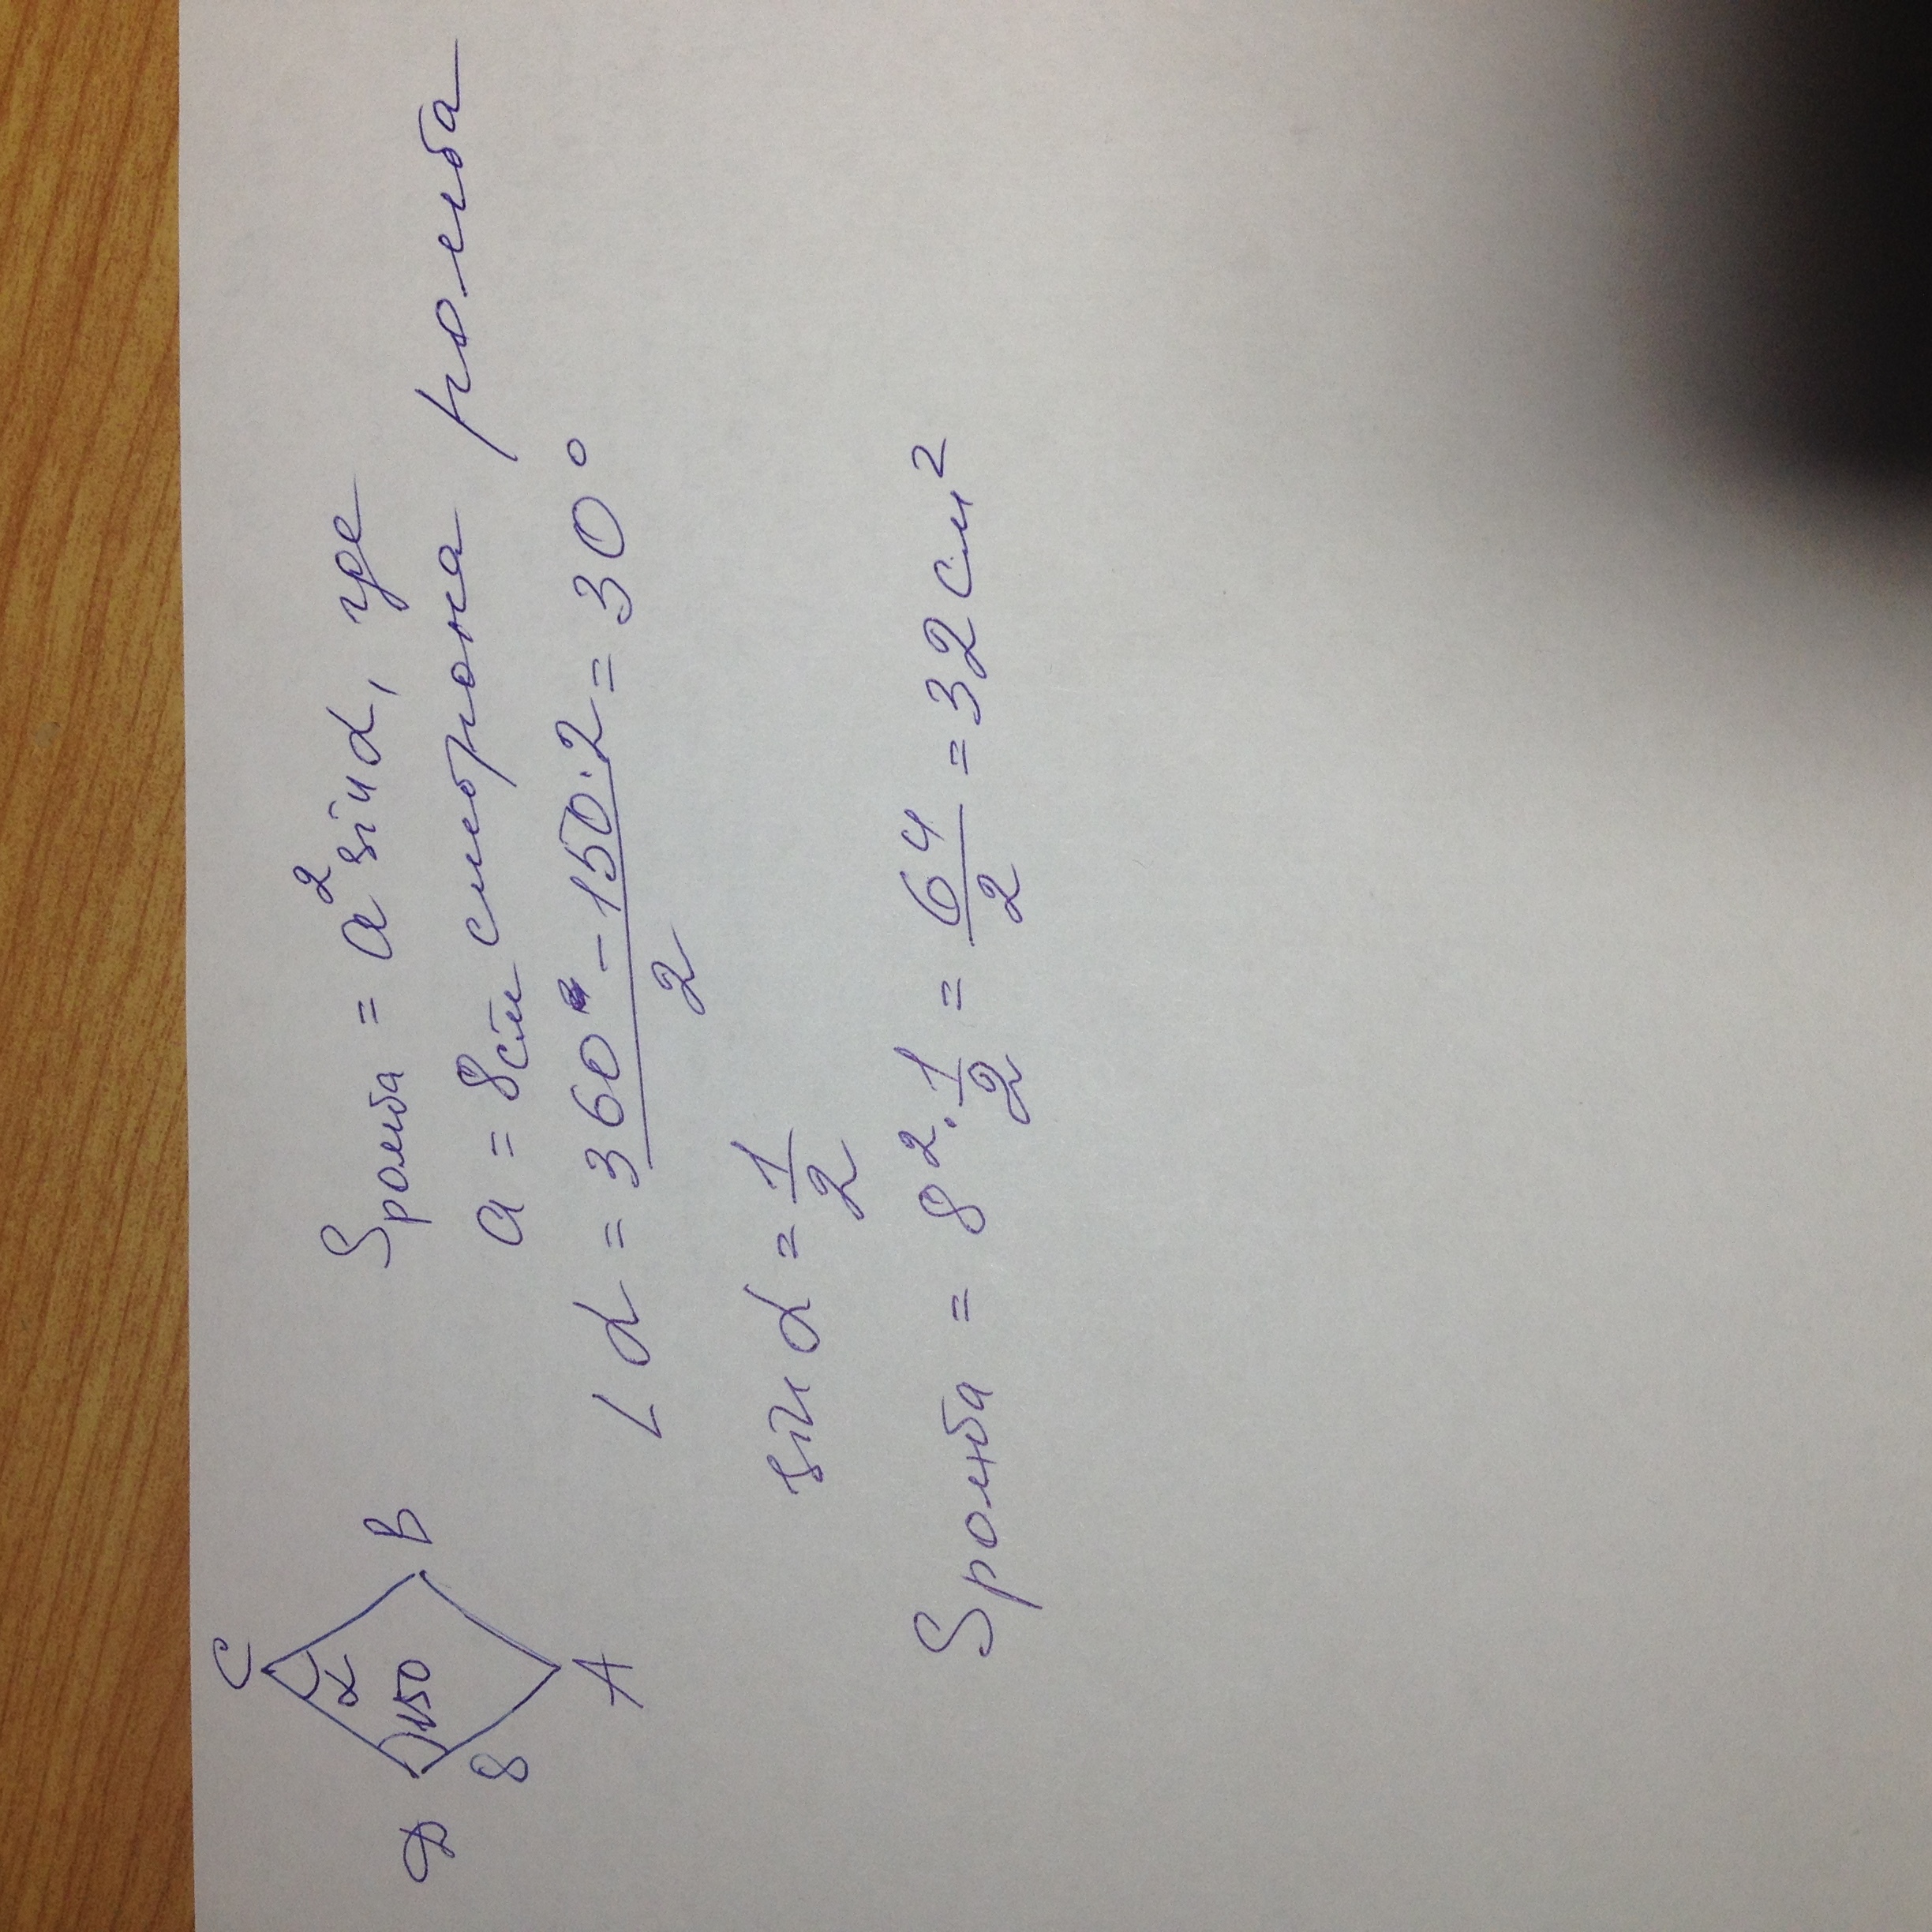 C
D 150 α B
8
A
Sромба = a² sin α, где
a = 8см сторона ромба
∠α = (360° - 150·2)/2 = 30°
sin α = 1/2
Sромба = 8² · 1/2 = 64/2 = 32 см²